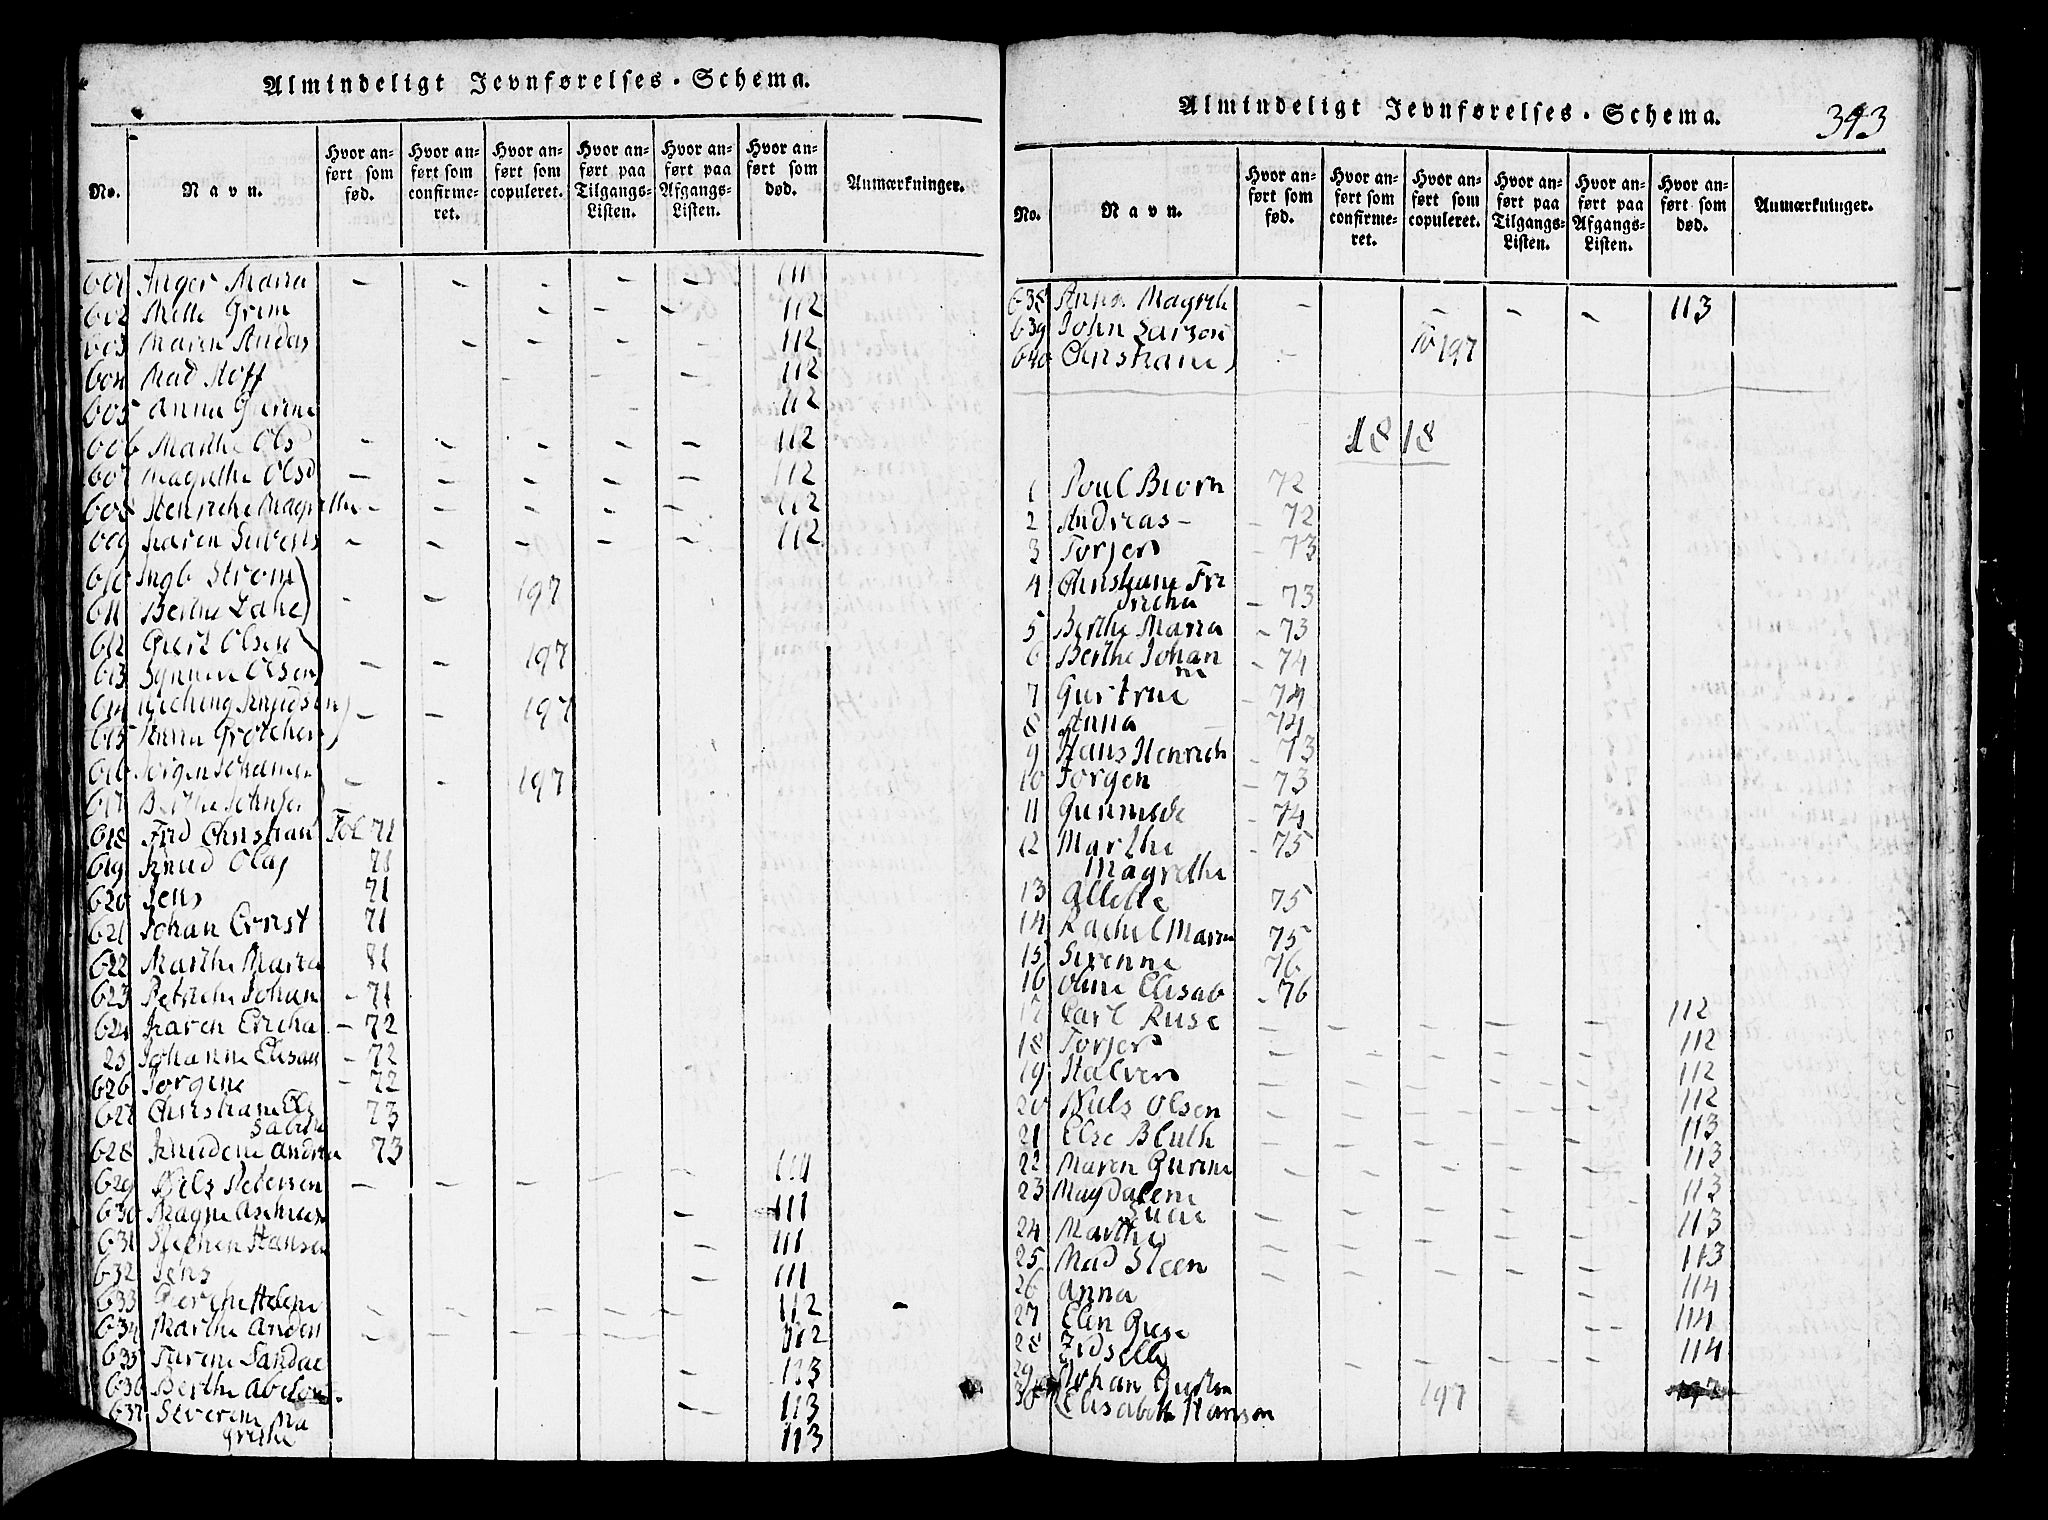 Almindeligt Jevnførelses-Schema.
No. Navn. Hvor anført som fød. Hvor anført som confirmeret. Hvor anført som copuleret. Hvor anført paa Tilgangs-Listen. Hvor anført paa Afgangs-Listen. Hvor anført som død. Anmærkninger.
601 Inger Maria - - - - - 111
602 Mette Grim - - - 112
603 Maren Andas - - - - 112
604 Mad Hoff - - - 112
605 Anna Gurine - 112
606 Marthe Ols - - - - - 112
607 Magrethe Olsd - - - - - 112
608 Henriche Magrethe - - - - - 112
609 Karen Siverts - - - - - 112
610 Ingb Strøm
611 Berthe - - 197
612 Giert Olsen
613 Synneve Olsen - - 197
614 Knudsen
615 Anna Grotchen - - 197
616 Jørgen Johannes
617 Berthe - - 197
618 Frid Christian Fol 71
619 Knud Olaj 71
620 Jens 71
621 Johan Ernst 71
622 Marthe Maria 81
623 Petriche Johan - 71
624 Karen Ericha - 72
25 Johanne Elisab - 72
626 Jørgine - 72
627 Christiane Eli
sabeth 73
628 Knudene Andrea 73
629 Niels Petersen - - - - - 111
630 Magne - 111
631 Steenen Hansen - 111
632 Jens - 111
633 Helene - - - - - 112
634 Marthe Anders - - - - - 112
635 Turine Sandal 113
636 Berthe Abel - 113
637 Severine Ma
grethe - - 113
Almindeligt Jevnførelses-Schema. 343
No. Navn. Hvor anført som fød. Hvor anført som confirmeret. Hvor anført som copuleret. Hvor anført paa Tilgangs-Listen. Hvor anført paa Afgangs-Listen. Hvor anført som død. Anmærkninger.
638 Anna Magreth - - - - 113
639 John Larsen
640 Christiane - 197
1818
1 Poul Biørn 72
2 Andreas - - 72
3 Torjer - 73
4 Christiane Fri
dricha - 73
5 Berthe Maria - 73
6 Berthe Johan
ne - 74
7 Gurtrue - 74
8 Anna 74
9 Hans Henrich - 73
10 Jørgen - 73
11 Gunnilde - 74
12 Marthe - 75
Magrethe
13 Ollette 75
14 Rachel Maria 75
15 Sirenne 76
16 Oline Elisab - 76
17 Carl Ruse - - - - - 112
18 Torjer - - - - - 112
19 Halver - - - - - 112
20 Niels Olsen - - - - - 112
21 Else Bluth - - - - - 113
22 Maren Gurine - - - - - 113
23 Magdalene - 113
24 Marthe - - - - - 113
25 Mad Steen - - - - - 113
26 Anna - 114
27 Elen Giese - - 114
28 Zidselle - - - - 114
29 Johan
30 Elisabeth Hansen 197